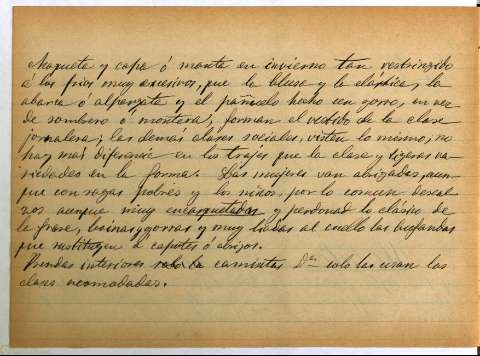 Maqueta y capa ó manta en invierno tan restringido
á los frios muy excesivos, que la blusa y la elástica, la
abarca ó alpargata y el pañuelo hecho un gorro, en vez
de sombrero ó montera, forman el vestido de la clase
jornalera; las demás clases sociales, visten lo mismo; no
hay más diferencia en los trajes que la clase y ligeras va-
riedades en la forma. Las mujeres van abrigadas, aun-
que con ropas pobres y los niños, por lo comun descal-
zos aunque muy y perdonad lo clásico de
la frase, gorras y muy liadas al cuello las bufandas
que sustituyen á capotes ó abrigos.
Prendas interiores camisetas solo las usan las
clases acomodadas.